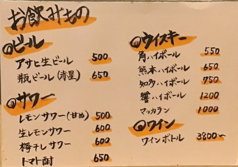 お飲みもの
◎ビール
アサヒ生ビール 500
瓶ビール(赤星) 650
◎サワー
レモンサワー(甘め) 500
生レモンサワー 600
梅干しサワー 602
トマト酎 650
◎ウイスキー
角ハイボール 550
熊本ハイボール 650
知多ハイボール 750
響ハイボール 1200
マッカラン 1000
◎ワイン
ワインボトル 3800〜